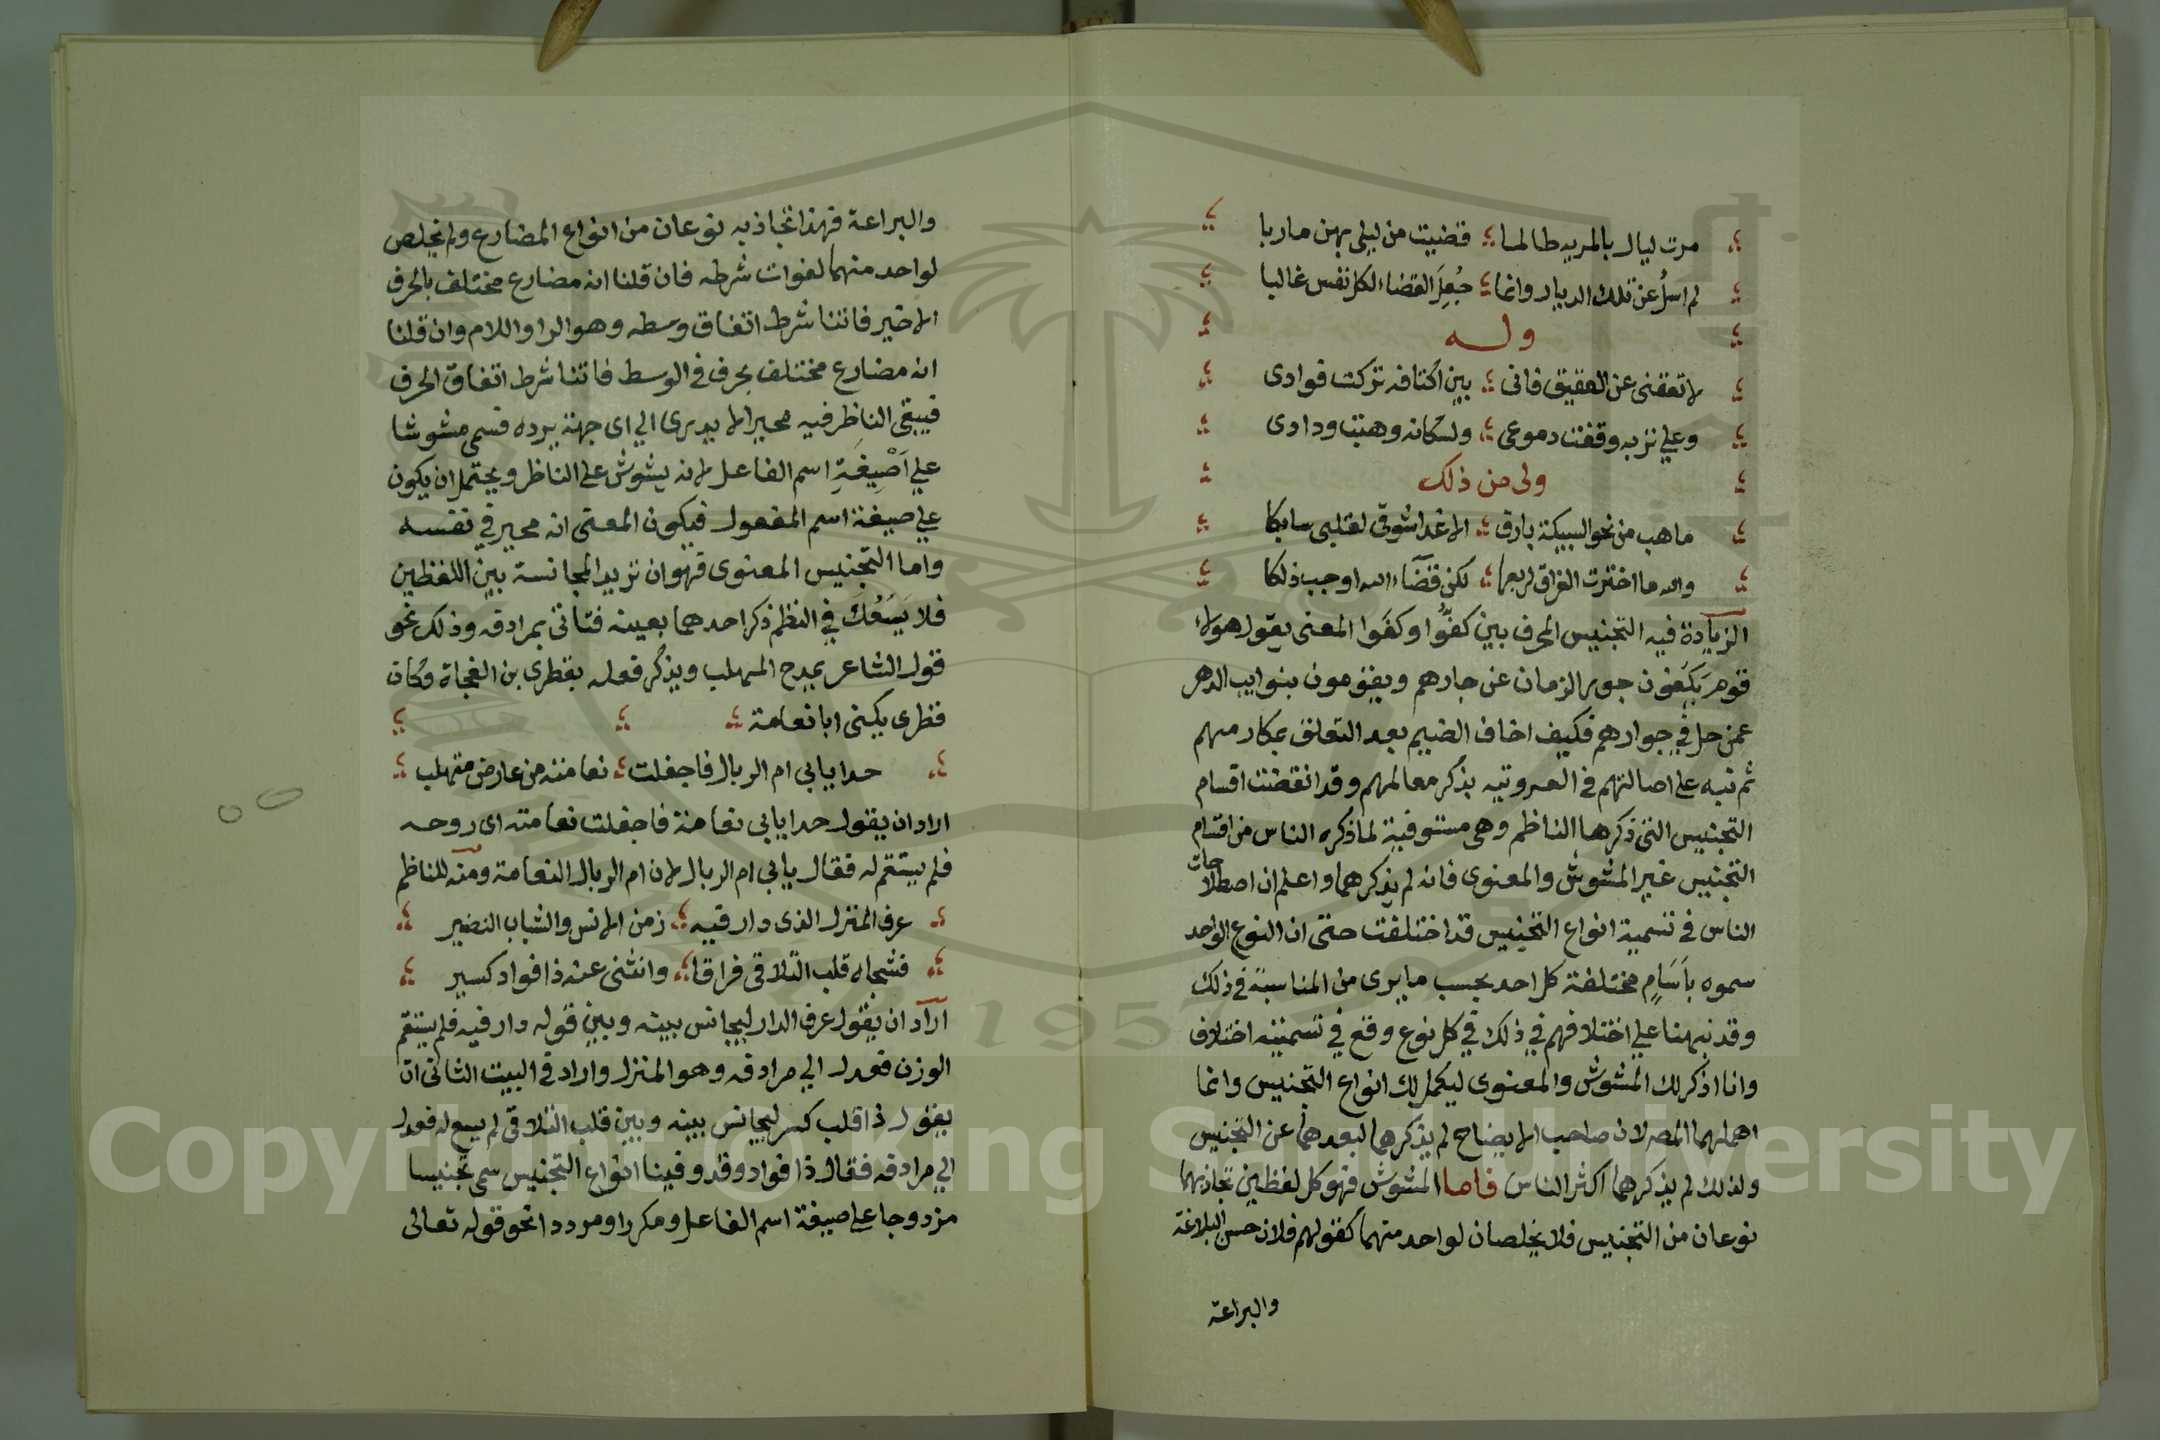 مرت ليال بالمريه طالما قضيت من ليلى بهن ماربا
لم اسلُ عن تلك الديار وانما جُعِلَ القضاء لكل نفس غالبا
وله
لا تعقنى عن العقيق فانى بين اكنافه تركت فوادى
وعلي تربه وقفت دموعى ولسكانه وهبت ودادى
ولى من ذلك
ما هب من نحو السبيكة بارق الا غدا شوقى لقلبى سابكا
والله ما اخترت الفراق لربعها لكن قضآء الله اوجب ذلكا
الزيادة فيه التجنيس المحرف بين كفوا وكفوا المعنى يقول هولاء
قوم يكفون جور الزمان عن جارهم ويقومون بنوايب الدهر
عمن حل في جوارهم فكيف اخاف الضيم بعد التعلق بمكارمهم
ثم نبه علي اصالتهم فى العروتيه بذكر معالمهم وقد انقضت اقسام
التجنيس التى ذكرها الناظم وهى مستوفية لما ذكره الناس من اقسام
التجنيس غير المشوش والمعنوى فانه لم يذكرهما واعلم ان اصطلاحات
الناس فى تسمية انواع التجنيس قد اختلفت حتى ان النوع الواحد
سموه باَسَامٍ مختلفة كل احد بحسب ما يرى من المناسبة فى ذلك
وقد نبهنا علي اختلافهم في ذلك في كل نوع وقع في تسميته اختلاف
وانا اذكر لك المشوش والمعنوى ليكمل لك انواع التجنيس وانما
اهملهما المص لان صاحب الايضاح لم يذكرهما لبعدهما عن التجنيس
ولذلك لم يذكرهما اكثر الناس فاما المشوش فهو كل لفظين تجاذبهما
نوعان من التجنيس فلا يخلصان لواحد منهما كقولهم فلان حسن البلاغة
والبراعة
والبراعة فهذا تجاذبه نوعان من انواع المضارع ولم يخلص
لواحد منهما لفوات شرطه فان قلنا انه مضارع مختلف بالحرف
الاخير فاتنا شرط اتفاق وسطه وهو الرا واللام وان قلنا
انه مضارع مختلف بحرف فى الوسط فاتنا شرط اتفاق الحرف
فيبقى الناظر فيه محيرا لا يدرى الي اى جهة يرده فسمى مشوشا
علي اَصْيِغَةِ اسم الفاعل لانه يشوش على الناظر ويحتمل ان يكون
علي صيغة اسم المفعول فيكون المعنى انه محير في نفسه
واما التجنيس المعنوى فهو ان تريد المجانسة بين اللفظين
فلا يَسَعُكَ في النظم ذكر احدهما بعينه فتاتى بمرادفه وذلك نحو
قول الشاعر يمدح المهلب ويذكر فعله بقطرى بن الفجاة وكان
قطرى يكنى ابا نعامة
حدا بابى ام الريال فاجفلت نعامته من عارض متهلب
اراد ان يقول حدا بابى نعامة فاجفلت نعامته اى روحه
فلم يستقم له فقال بابى ام الريال لان ام الريال النعامة ومنه للناظم
عرف المنزل الذى دار فيه زمن الانس والشباب النضير
فشجاه قلب التلاقى فراقا وانثنى عنه ذا فواد كسير
اراد ان يقول عرف الدار ليجانس بينه وبين قوله دار فيه فلم يستقم
الوزن فعدل الي مرادفه وهو المنزل واراد فى البيت الثانى ان
يقول ذا قلب كسر ليجانس بينه وبين قلب التلاقى لم يسع له فعدل
الي مرادفه فقال ذا فواد وقد وفينا انواع التجنيس سمى تجنيسا
مزدوجا علي صيغة اسم الفاعل ومكررا ومرددا نحو قوله تعالى
1957
Copyright © King Saud University